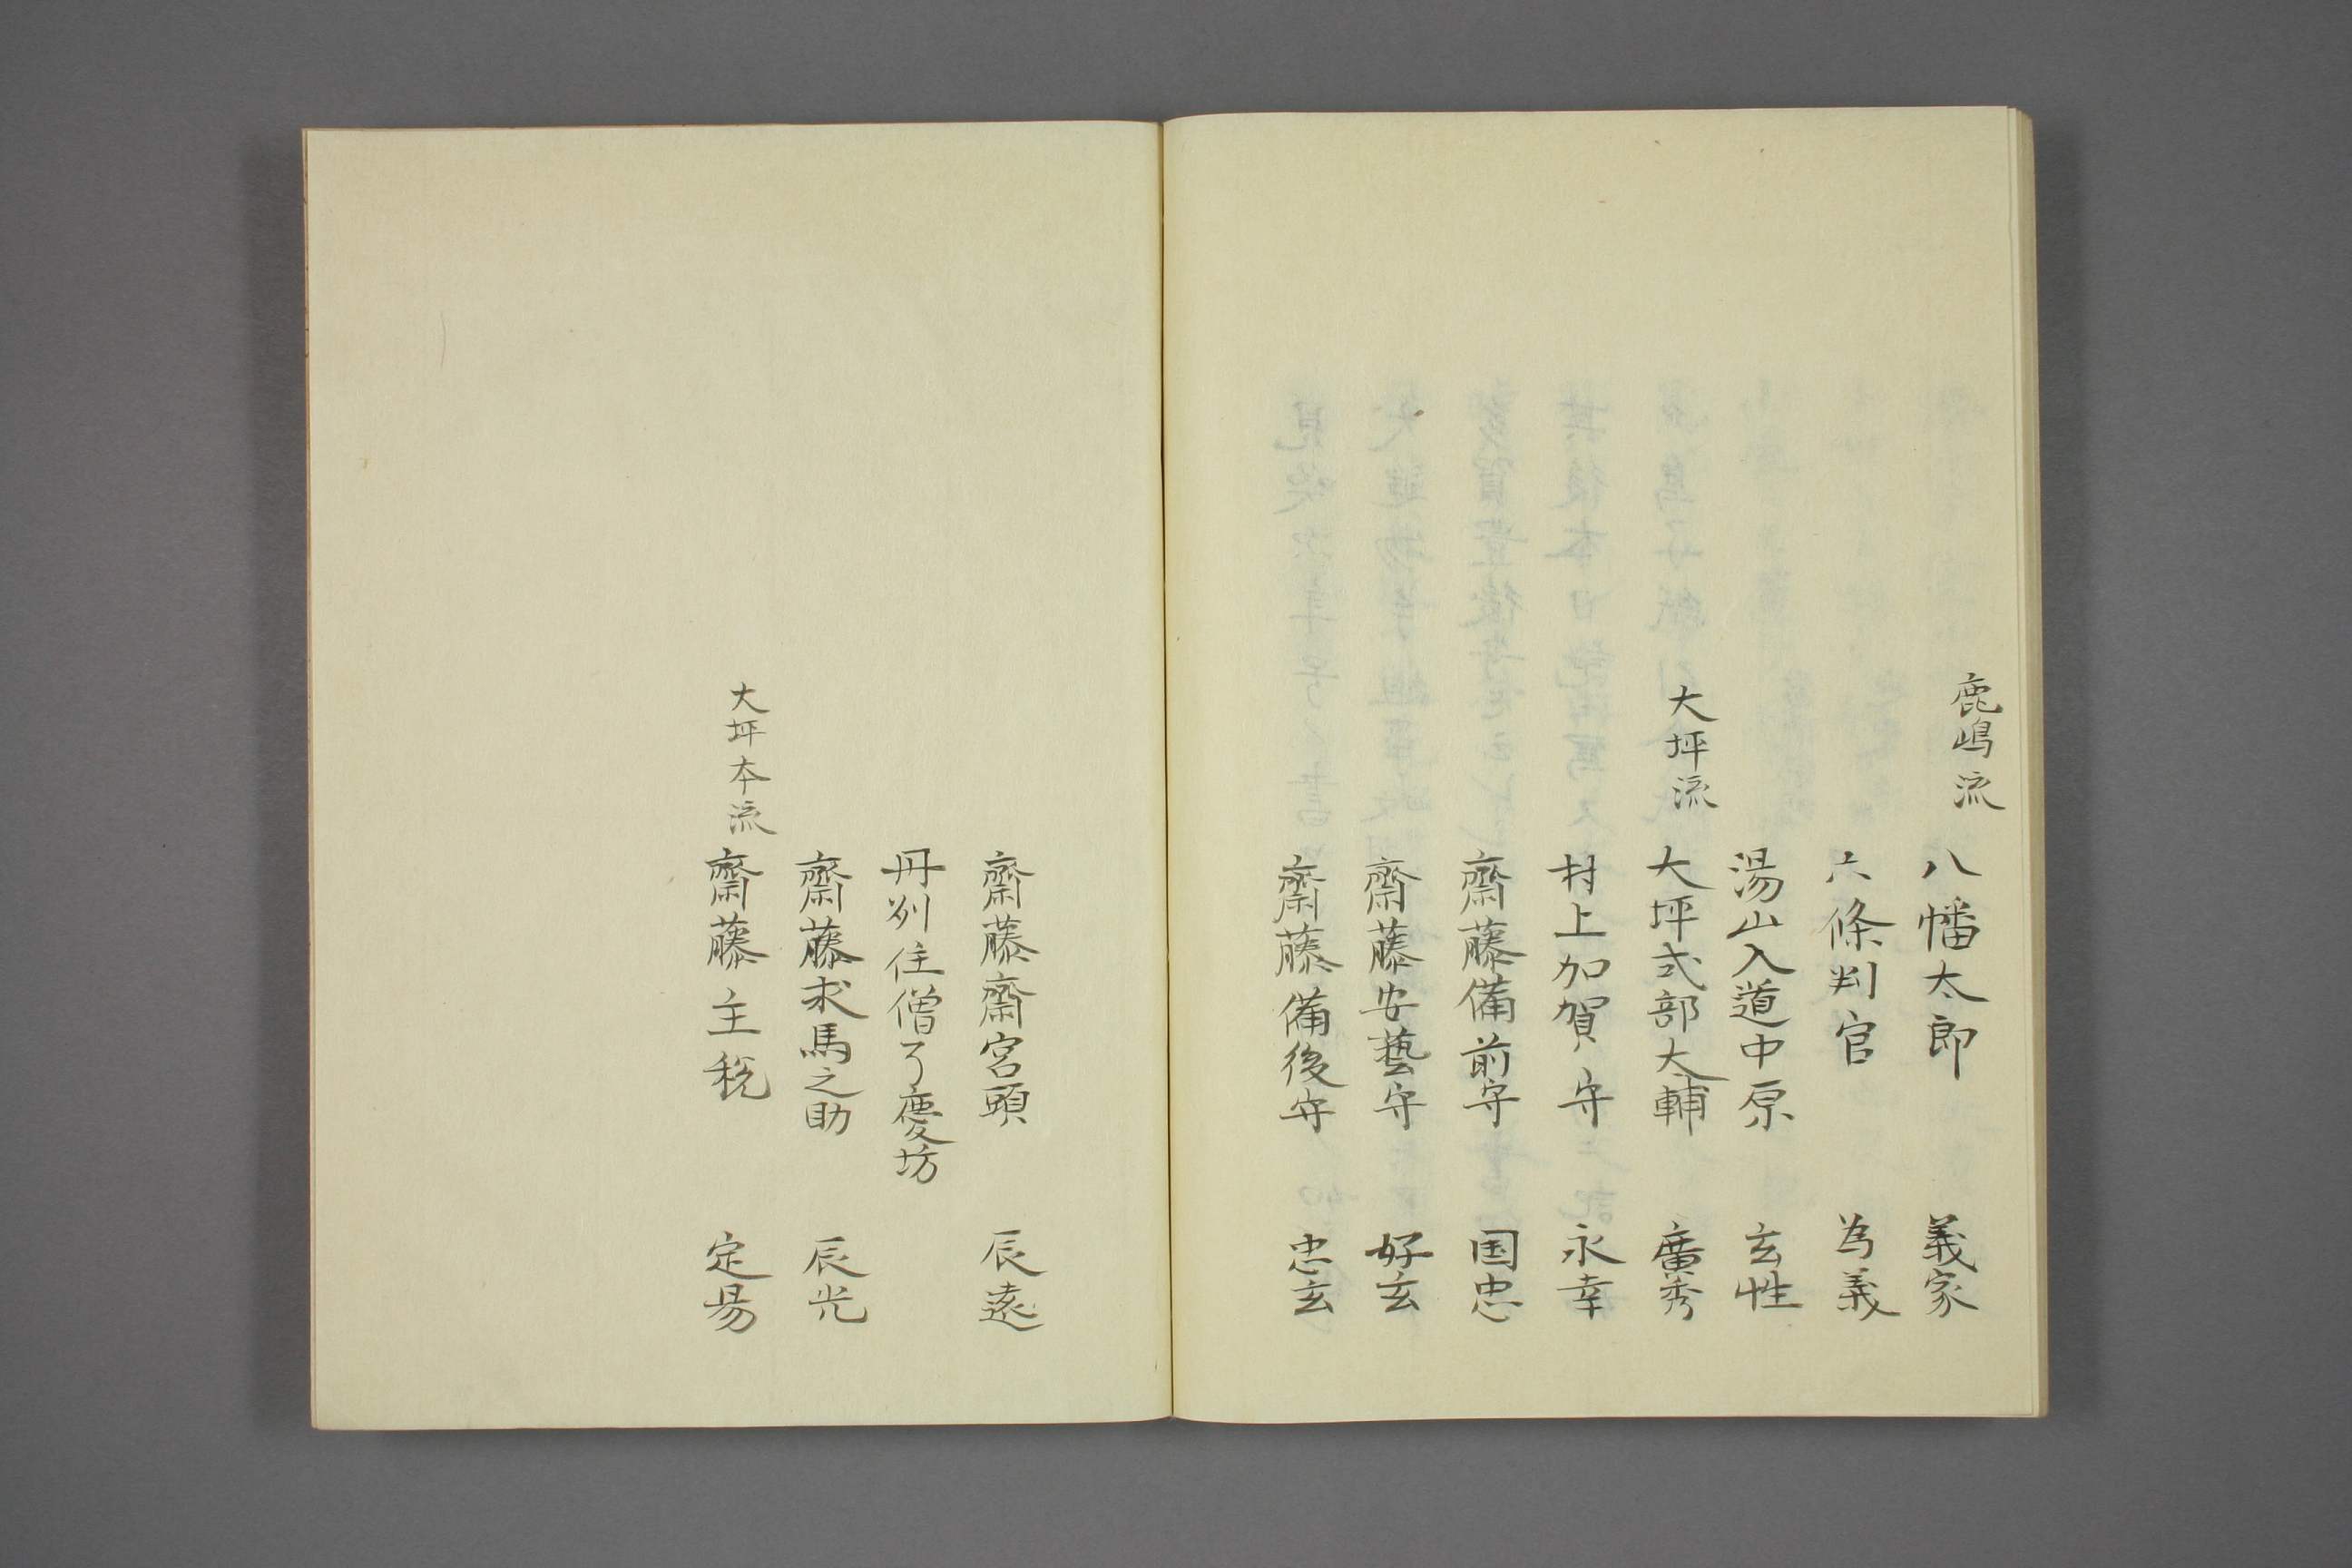 鹿嶋流
八幡太郎 義家
六條判官 為義
湯山入道中原 玄性
大坪流
大坪式部大輔 廣秀
村上加賀守 永幸
齋藤備前守 国忠
齋藤安藝守 好玄
齋藤備後守 忠玄
齋藤齋宮頭 辰遠
丹刕住僧了慶坊
齋藤求馬之助 辰光
大坪本流
齋藤主税 定易